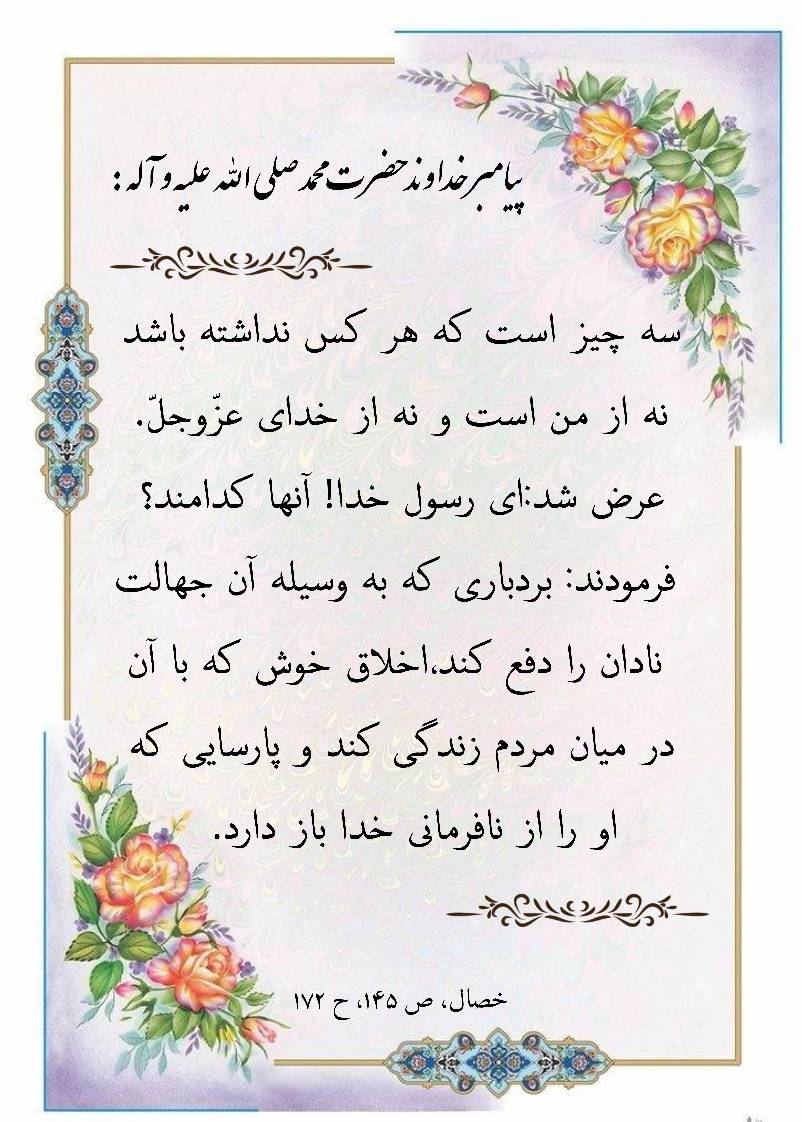 پیامبر خداوند حضرت محمد صلی الله علیه و آله :
سه چیز است که هر کس نداشته باشد
نه از من است و نه از خدای عزّوجلّ.
عرض شد:ای رسول خدا! آنها کدامند؟
فرمودند: بردباری که به وسیله آن جهالت
نادان را دفع کند،اخلاق خوش که با آن
در میان مردم زندگی کند و پارسایی که
او را از نافرمانی خدا باز دارد.
خصال، ص ۱۴۵، ح ۱۷۲